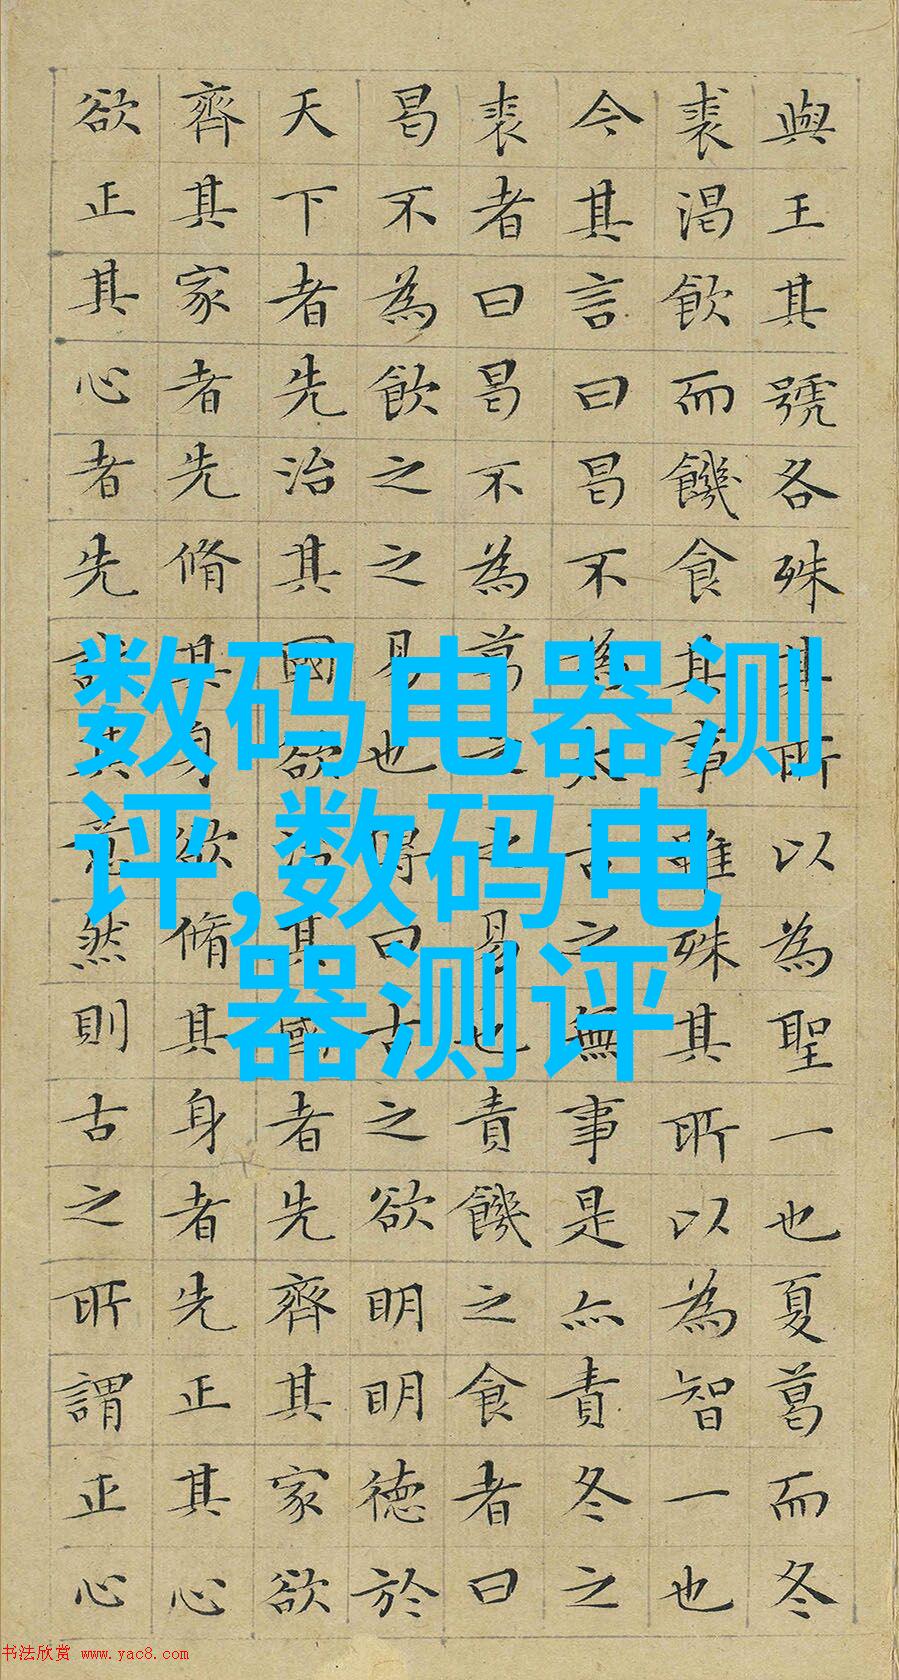 與王其號各殊其所以為聖一也夏葛而冬
裘渴飲而饑食其事雖殊其所以為智一也
今其言曰曷不為太古之無事是亦責冬之
裘者曰曷不為葛之之易也責饑之食者曰
曷不為飲之之易也曰古之欲明明德於
天下者先治其國欲治其國者先齊其家欲
齊其家者先脩其身欲脩其身者先正其心
欲正其心者先誠其意然則古之所謂正心
数码电器测
评,数码电
器测评
书法欣赏 www.yac8.com